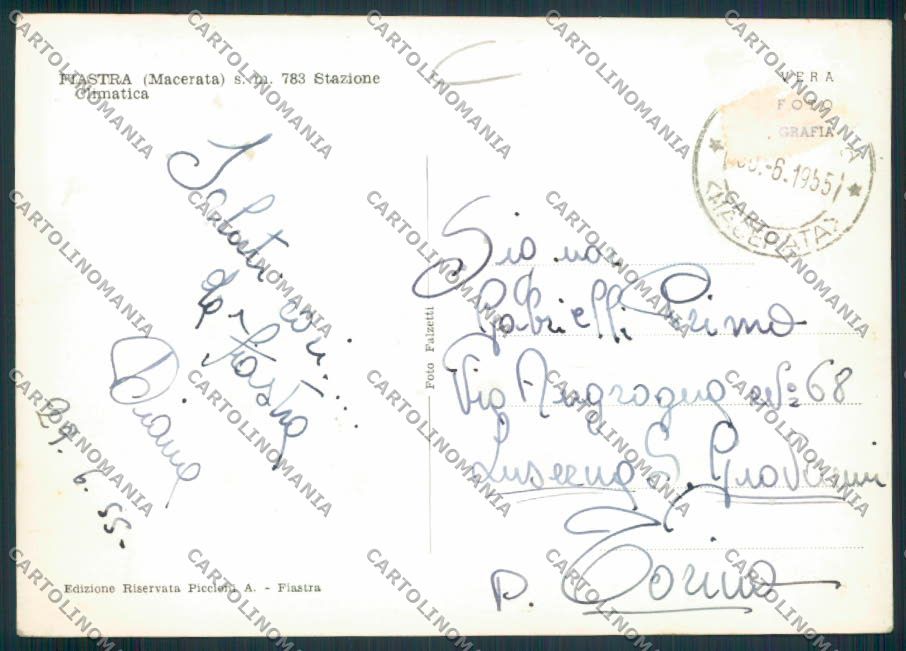 FIASTRA (Macerata) s. m. 783 Stazione
Climatica
VERA
FOTO
GRAFIA
-6.1955
(MACERATA)
Saluti cari...
da Fiastra
Diana
29.6.55.
Foto Falzetti
Gabrielli Primo
Via Angrogna N: 68
Luserna S. Giovanni
p. Torino
Edizione Riservata Piccioni A. - Fiastra
CARTOLINOMANIA